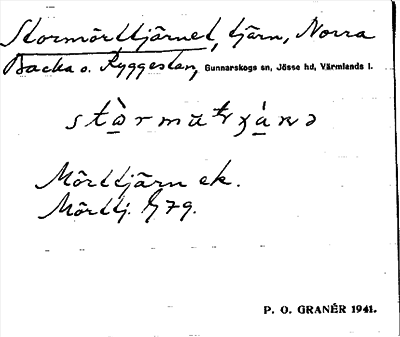 Stormörttjärnet, tjärn, Norra
Backa o. Ryggestan, Gunnarskogs sn, Jösse hd, Värmlands l.
Mörttjärn ek.
Mörttj. G79.
P. O. GRANÉR 1941.